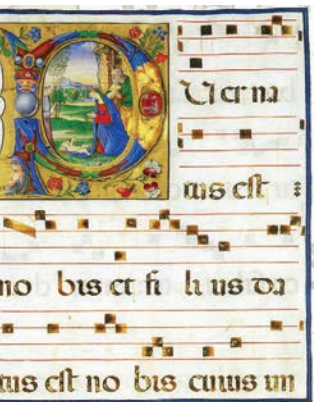 P Uer na
tus est
no bis et fi li us da
tus est no bis cuius im